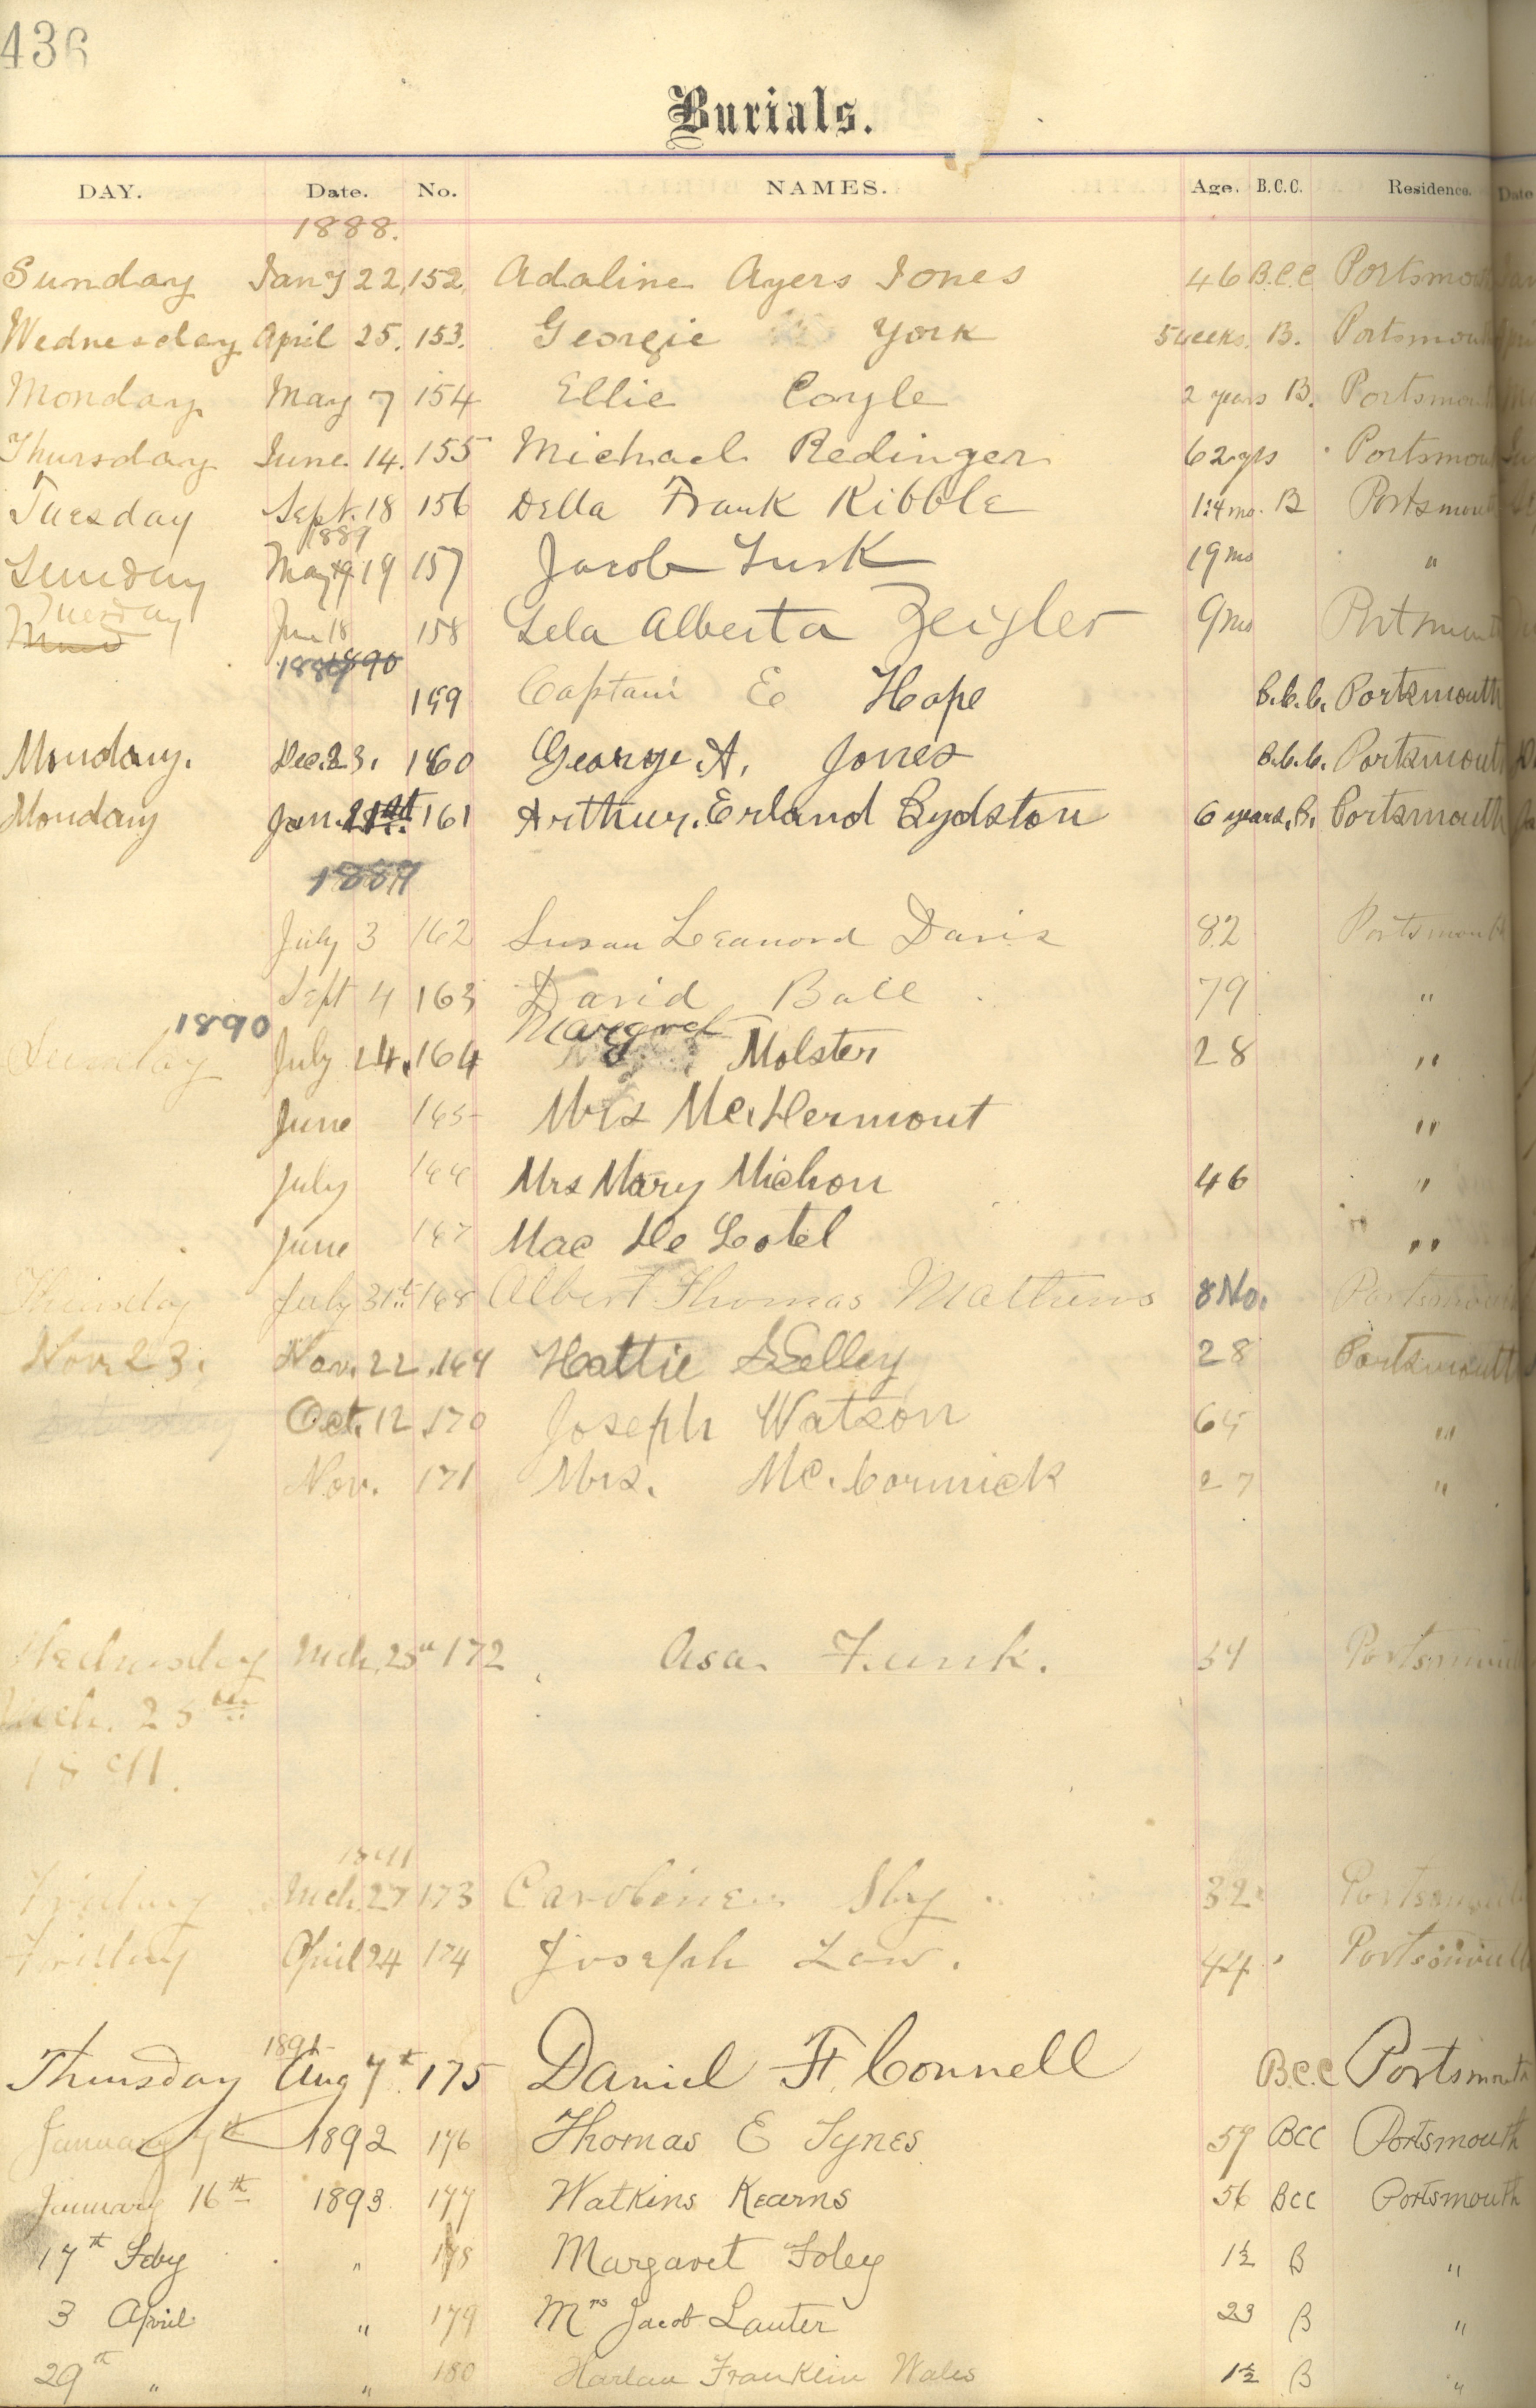 436
Burials.
DAY. Date. No. NAMES. Age. B.C.C. Residence. Date
1888.
Sunday Jan'y 22, 152. Adaline Ayers Jones 46 B.C.C Portsmou
Wednesday April 25. 153. Georgie York 5 weeks. B. Portsmout
Monday May 7 154 Ellie Coyle 2 years B. Portsmout
Thursday June 14. 155 Michael Redinger 62 yrs Portsmou
Tuesday Sept. 18 156 Della Frank Kibble 1:4 mo. B Portsmout
1889
Sunday May 19 157 Jacob Lusk 19 mo "
Tuesday June 18 158 Lela Alberta Zeigler 9 mo Portsmout
1889 1890
159 Captain E Hope B.C.C. Portsmouth
Monday. Dec. 23. 160 George. A. Jones B.C.C. Portsmouth
Monday Jan. 161 Arthur. Erland Lydston 6 years. B. Portsmouth
1889
July 3 162 Susan Leanord Davis 82 Portsmouth
Sept 4 163 David Ball 79 "
1890 Margaret
Sunday July 14. 164 Molster 28 "
June 165 Mrs Mc.Dermont "
July 166 Mrs Mary Michon 46 "
June 167 Mae De Lotel "
Thursday July 31st. 168 Albert Thomas Mathews 8 Mo. Portsmouth
Nov. 23. Nov. 22. 169 Hattie Kelley 28 Portsmouth
Oct. 12 170 Joseph Watson 65 "
Nov. 171 Mrs. Mc.Cormick 27 "
Wednesday Mch. 25th 172 Asa Funk. Portsmouth
Mch. 25th
1891.
1891
Friday Mch. 27 173 Caroline Sly 32 Portsmouth
Friday April 24 174 Joseph Law. 44 Portsmouth
1891
Thursday Aug 7th 175 Daniel F. Connell B.C.C Portsmouth
January 7th 1892 176 Thomas E Synes 57 BCC Portsmouth
January 16th 1893 177 Watkins Kearns 56 BCC Portsmouth
17th Feby " 178 Margaret Foley 1½ B "
3 April " 179 Mrs Jacob Lauter 23 B "
29th " " 180 Harlan Franklin Wales 1½ B "